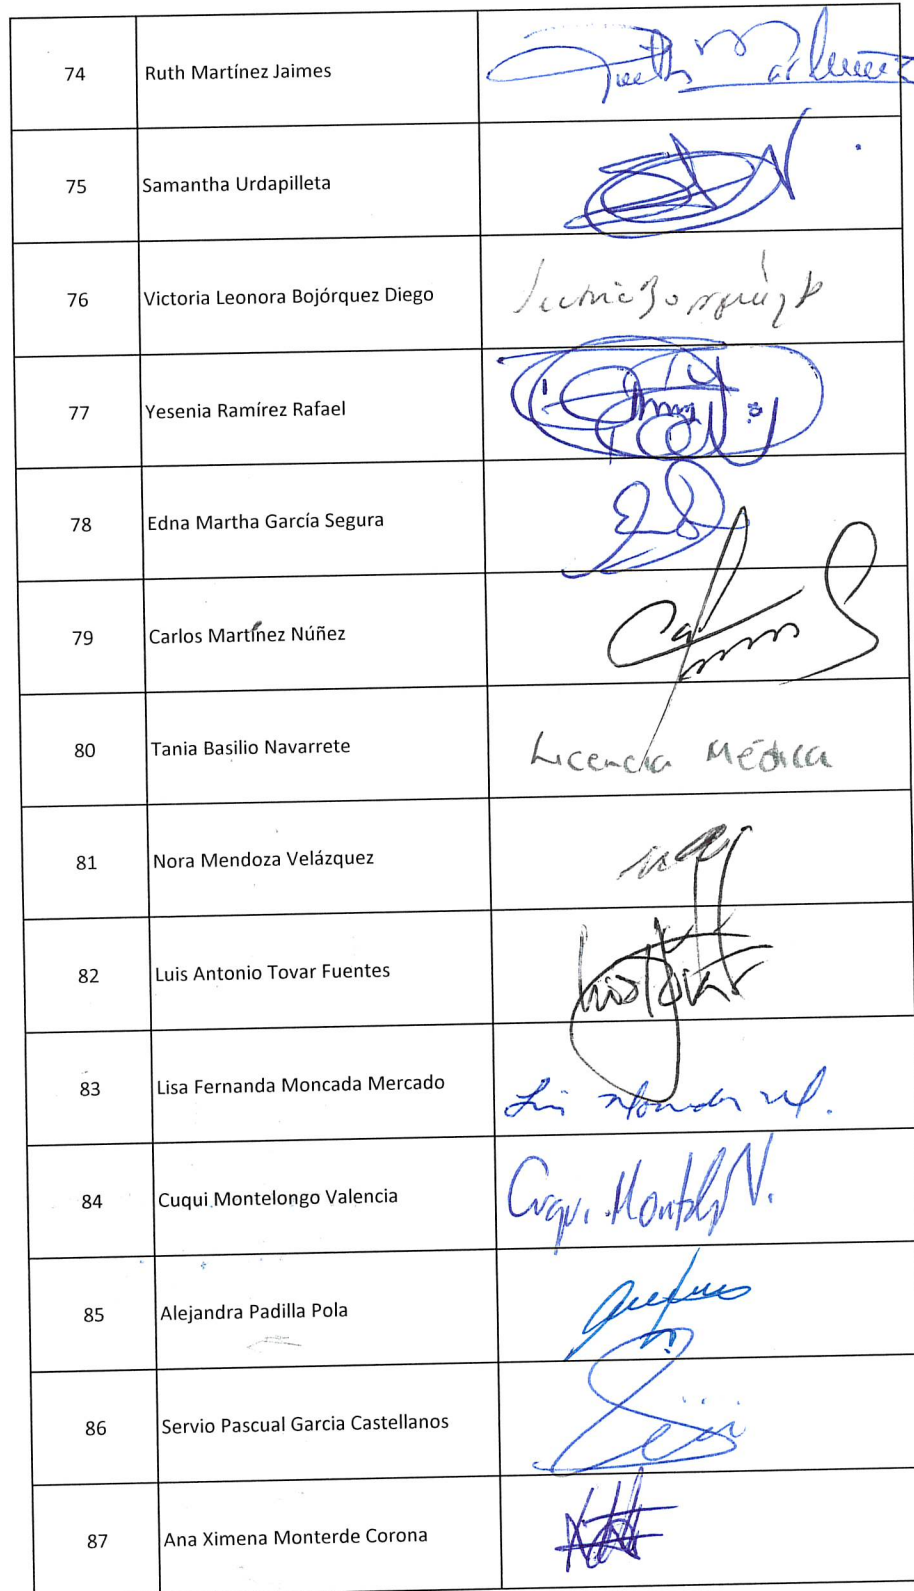 74 Ruth Martínez Jaimes Ruth Martínez
75 Samantha Urdapilleta
76 Victoria Leonora Bojórquez Diego
77 Yesenia Ramírez Rafael
78 Edna Martha García Segura
79 Carlos Martínez Núñez
80 Tania Basilio Navarrete Licencia Médica
81 Nora Mendoza Velázquez
82 Luis Antonio Tovar Fuentes
83 Lisa Fernanda Moncada Mercado
84 Cuqui Montelongo Valencia Cuqui. V.
85 Alejandra Padilla Pola
86 Servio Pascual Garcia Castellanos
87 Ana Ximena Monterde Corona